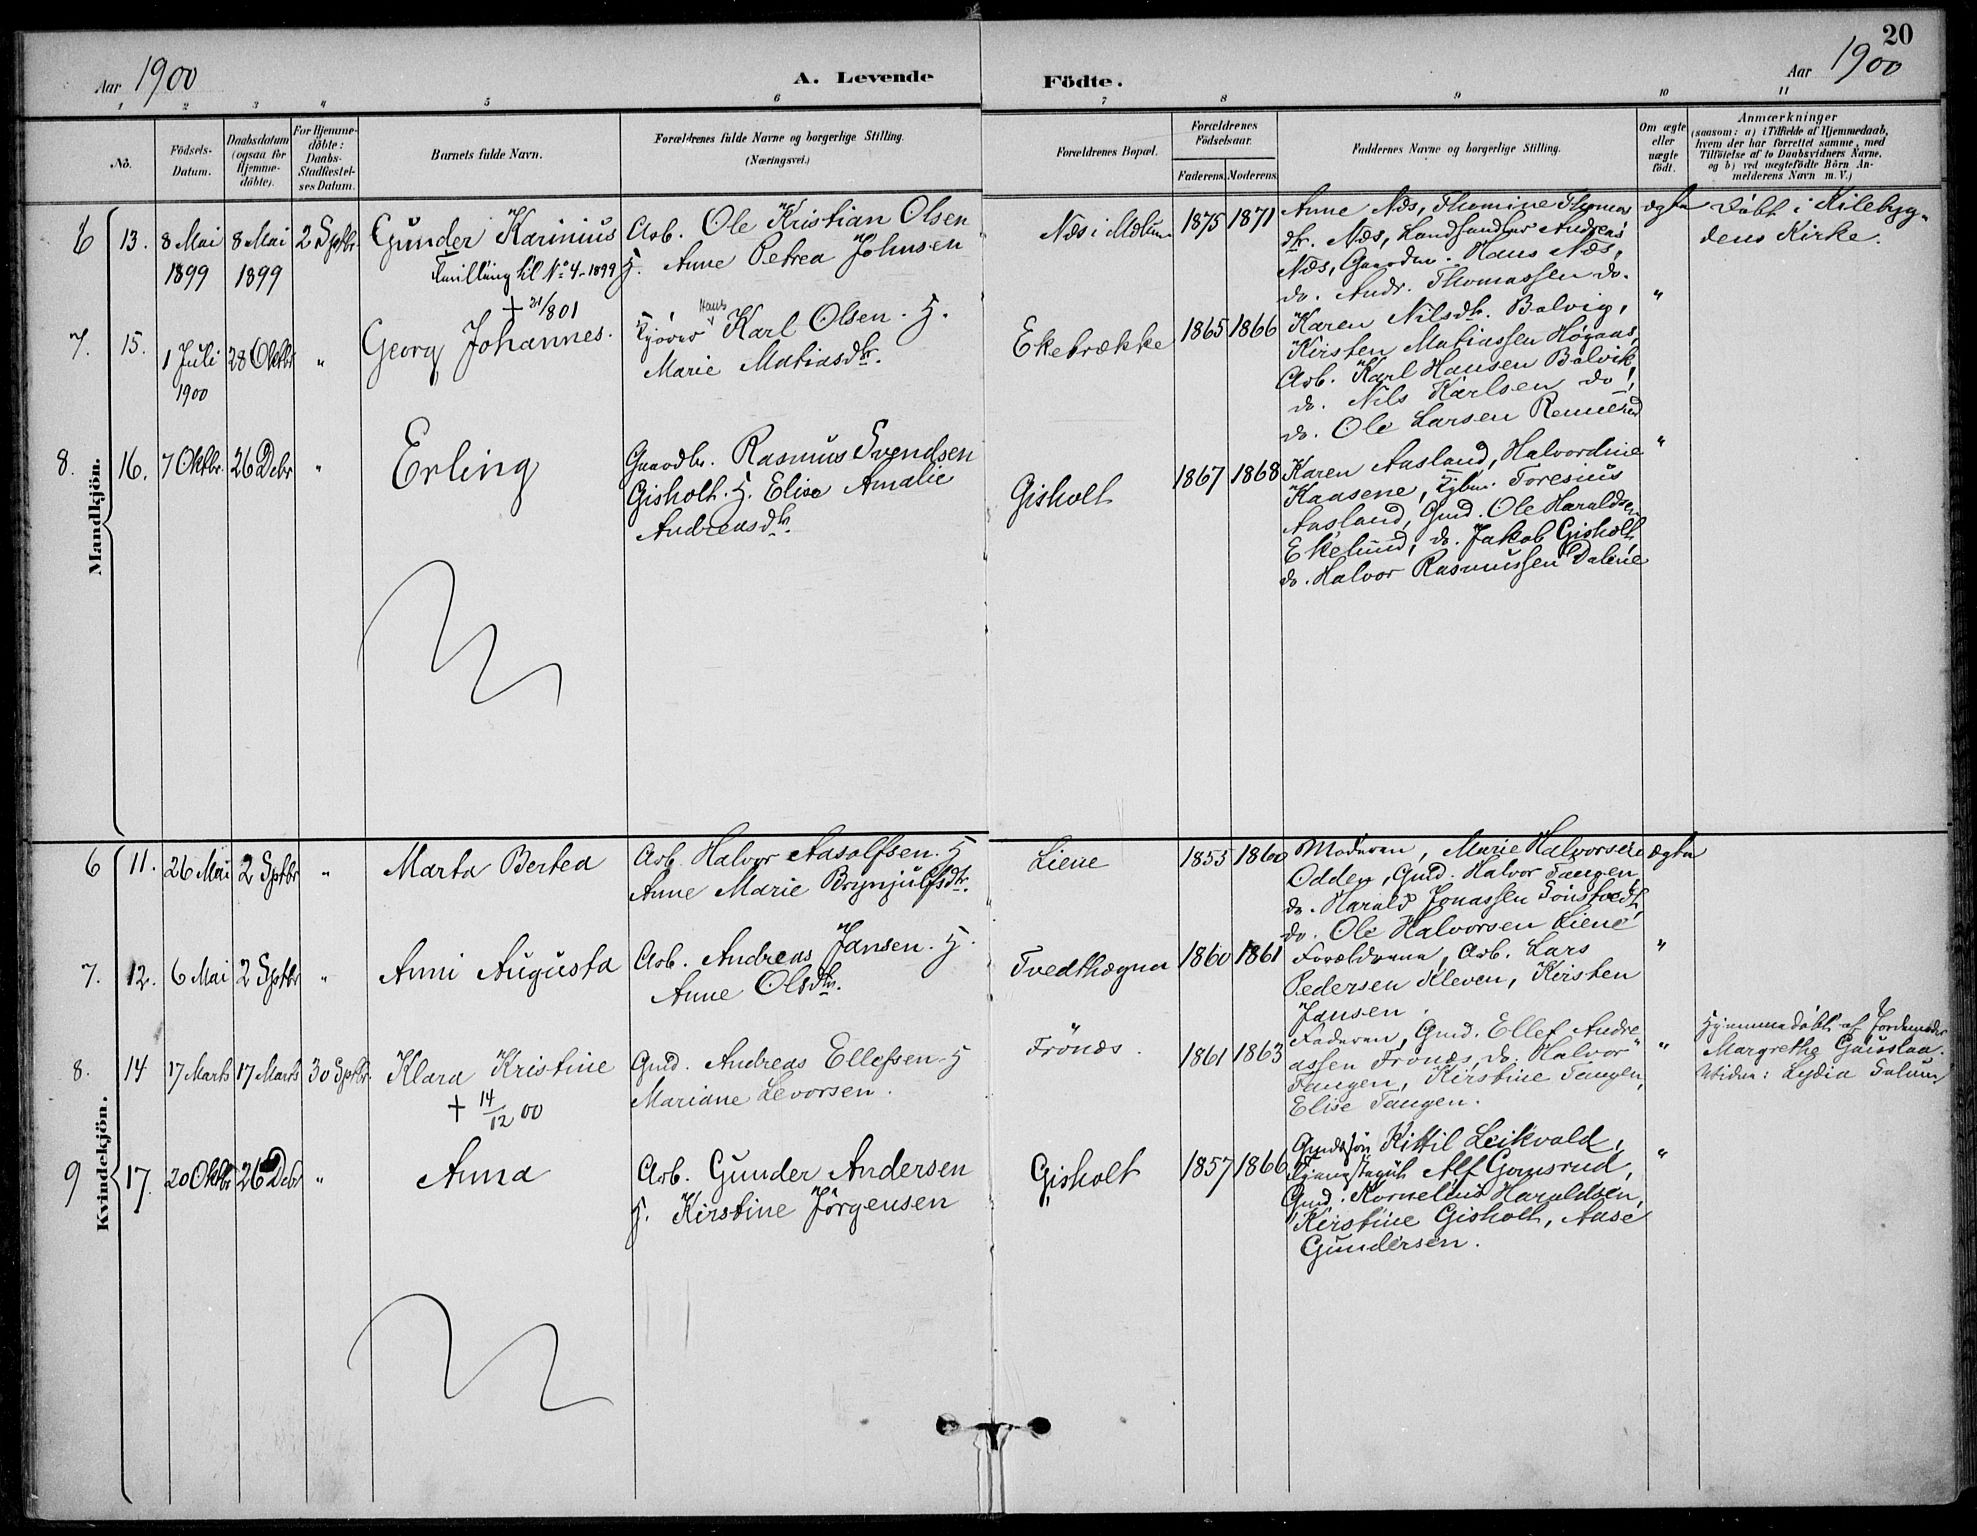 20
Aar 1900
A. Levende Födte.
Aar 1900
1 2 3 4 5 6 7 8 9 10 11
No.
Födsels-
Datum.
Daabsdatum
(ogsaa for
Hjemme-
döbte).
For Hjemme-
döbte:
Daabs-
Stadfæstel-
ses Datum.
Barnets fulde Navn.
Forældrenes fulde Navne og borgerlige Stilling.
(Næringsvei.)
Forældrenes Bopæl.
Forældrenes
Födselsaar.
Faderens. Moderens.
Faddernes Navne og borgerlige Stilling.
Om ægte
eller
uægte
födt.
Anmærkninger
(saasom: a) i Tilfælde af Hjemmedaab,
hvem der har forrettet samme, med
Tilföielse af to Daabsvidners Navne,
og b) ved uægtefödte Börn An-
melderens Navn m. V.)
Mandkjön.
6 13. 8 Mai 1899
8 Mai 1899
2 Sptbr.
Gunder Karinius
Tvilling til No 4-1899
Arb. Ole Kristian Olsen
H. Anne Petrea Johnsen
Næs i Mælum
1875 1871
Anne Næs, Thomine Thomas
dtr. Næs, Landhandler Andreas
Næs, Gaardm. Hans Næs,
do. Andr. Thomassen do.
ægte
Döbt i Kilebyg-
dens Kirke.
7. 15. 1 Juli 1900
28 Oktbr
"
+ 21/8 01
Georg Johannes.
Hans
Kjører Karl Olsen. H.
Marie Matiasdtr.
Ekebrække
1865 1866
Karen Nilsdtr. Bolvig,
Kirsten Matiassen Høgaas,
Arb. Karl Hansen Bolvik,
do. Nils Karlsen do,
do. Ole Larsen
"
8. 16. 7 Oktbr. 26 Dcbr
"
Erling
Gaardbr. Rasmus Svendsen
Gisholt. H. Elise Amalie
Andreasdtr.
Gisholt
1867 1868
Karen Aasland, Halvordine
Kaasene, Toresius
Aasland, Gmd. Ole Haraldsen
Ekelund, do. Jakob Gisholt,
do. Halvor Rasmussen Dalene
"
Kvindekjön.
6 11. 26 Mai 2 Sptbr
"
Marta Bertea
Arb. Halvor Aasolfsen. H
Anne Marie Brynjulfsdtr.
Liene
1855 1860
Moderen, Marie Halvorsen
Odden, Gmd. Halvor Tangen,
do. Harald Jonassen
do. Ole Halvorsen Liene
ægte
7. 12. 6 Mai 2 Sptbr
"
Anni Augusta
Arb. Andreas Jansen. H.
Anne Olsdtr.
Tvedthægna
1860 1861
Forældrene, Arb. Lars
Pedersen Kleven, Kirsten
Jansen.
"
8. 14 17 Marts 17 Marts 30 Sptbr.
Klara Kristine
+ 14/12 00
Gmd. Andreas Ellefsen H
Mariane Levorsen.
Frönæs.
1861 1863
Faderen, Gmd. Ellef Andre
assen Frönæs, do. Halvor
Tangen, Kirstine Tangen,
Elise Tangen.
"
Hjemmedöbt af Jordemoder
Margrethe
Vidne: Lydia
9 17. 20 Oktbr 26 Dcbr
"
Anna
Arb. Gunder Andersen
H. Kirstine Jörgensen
Gisholt
1857 1866
Gmdssön Kittil Leikvold,
Alf Gomsrud,
Gmd. Kornelius Haraldsen,
Kirstine Gisholt, Aase
Gundersen.
"